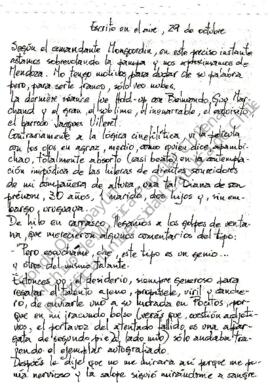 Escrito en el aire, 29 de octubre
Según el comandante Mongoordin, en este preciso instante
estamos sobrevolando la pampa y nos aproximamos de
Mendoza. No tengo motivos para dudar de su palabra
pero, para serte franco, sólo veo nubes.
La dernière séance fue hold-up con Belmondo, Guy Mar-
chand y el gran, el sublime, el inenarrable, el exquisito,
el barrado Jacques Villeret.
Contrariamente a la lógica cinefilística, vi la película
con los ojos en agraz, medio, como quien dice,
chao, totalmente absorto (casi beato) en la contempla-
ción impúdica de las hileras de dientes sonreidores
de mi compañera de altura, una tal Diana de son
prénom, 30 años, 1 marido, dos hijos y, sin em-
bargo, uruguaya.
De hilo en carrasco, llegamos a los golpes de venta-
na, que merecieron algunos comentarios del tipo:
- Pero escuchame, che, este tipo es un genio...
y otros del mismo talante.
Entonces yo, el denderio, siempre generoso para
regalar el talento ajeno, prometíle, viril y canche-
ro, de enviarle uno a su morada en Pocitos, por-
que en mi iracundo bolso (verás que, cuestión adjeti-
vos, el portavoz del atentado fallido es una alpar-
gata de segundo pie) (lado mío) sólo andaba tra-
yendo el ejemplar autografiado.
Después le dije que no me mirara así porque me po-
nía nervioso y la salope siguió mirándome a sangre